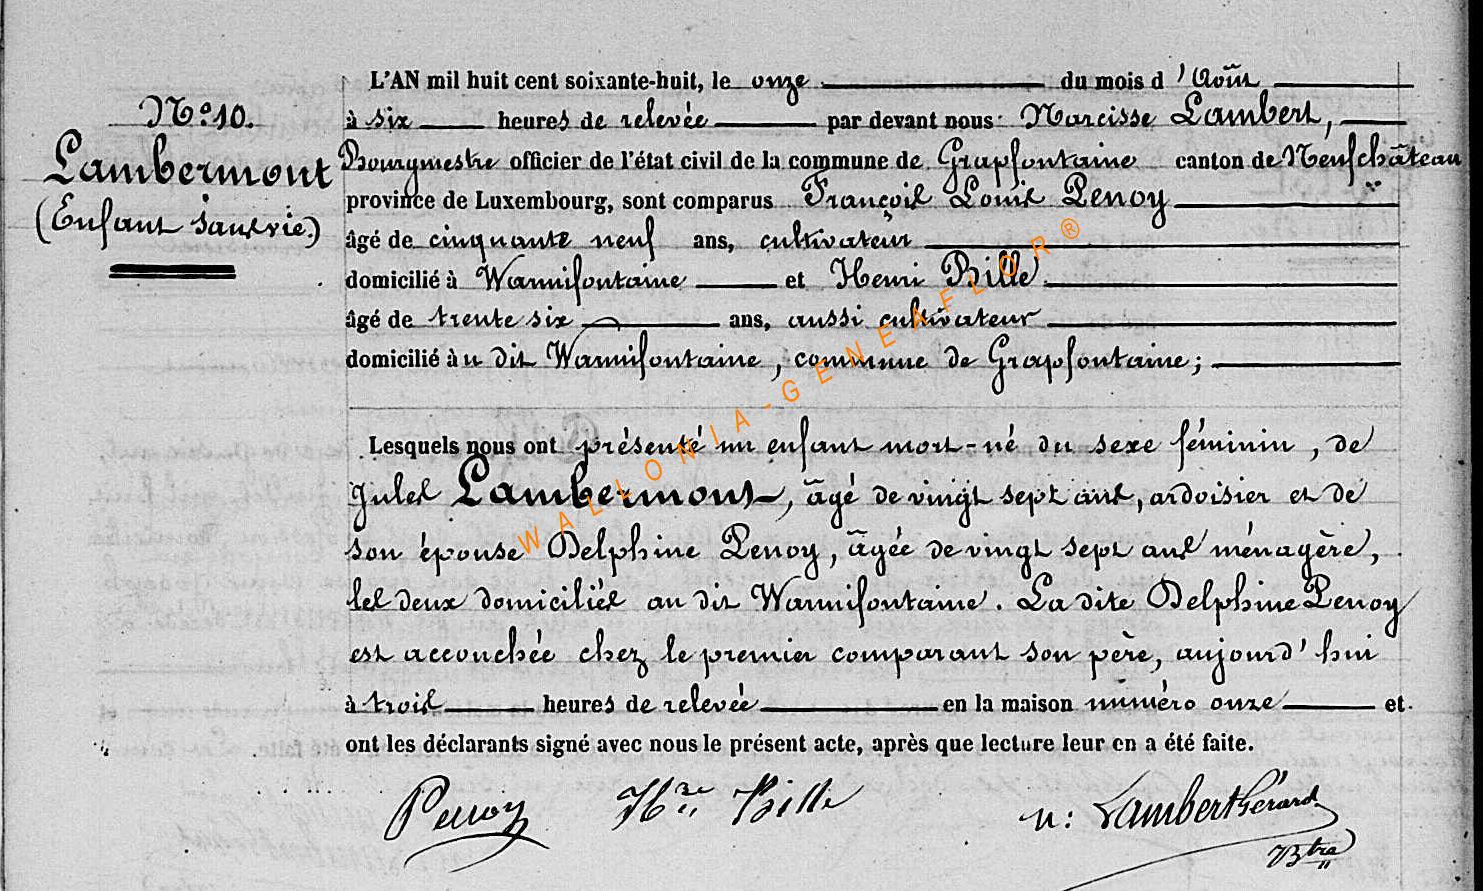 N.° 10.
Lambermont
(Enfant sans vie.)
L'AN mil huit cent soixante-huit, le onze du mois d'Août
à six heures de relevée par devant nous Narcisse Lambert,
Bourgmestre officier de l'état civil de la commune de Grapfontaine canton de Neufchâteau
province de Luxembourg, sont comparus François Louis Penoy
âgé de cinquante neuf ans, cultivateur
domicilié à Warmifontaine et Henri Bille
âgé de trente six ans, aussi cultivateur
domicilié àu dit Warmifontaine, commune de Grapfontaine;
Lesquels nous ont présenté un enfant mort-né du sexe féminin, de
Jules Lambermont, âgé de vingt sept ans, ardoisier et de
son épouse Delphine Penoy, âgée de vingt sept ans ménagère,
les deux domiciliés au dit Warmifontaine. La dite Delphine Penoy
est accouchée chez le premier comparant son père, aujourd'hui
à trois heures de relevée en la maison numéro onze et
ont les déclarants signé avec nous le présent acte, après que lecture leur en a été faite.
Penoy Hri Bille N: Lambert Gérard
Btre
WALLONIA-GENEAFLOR®